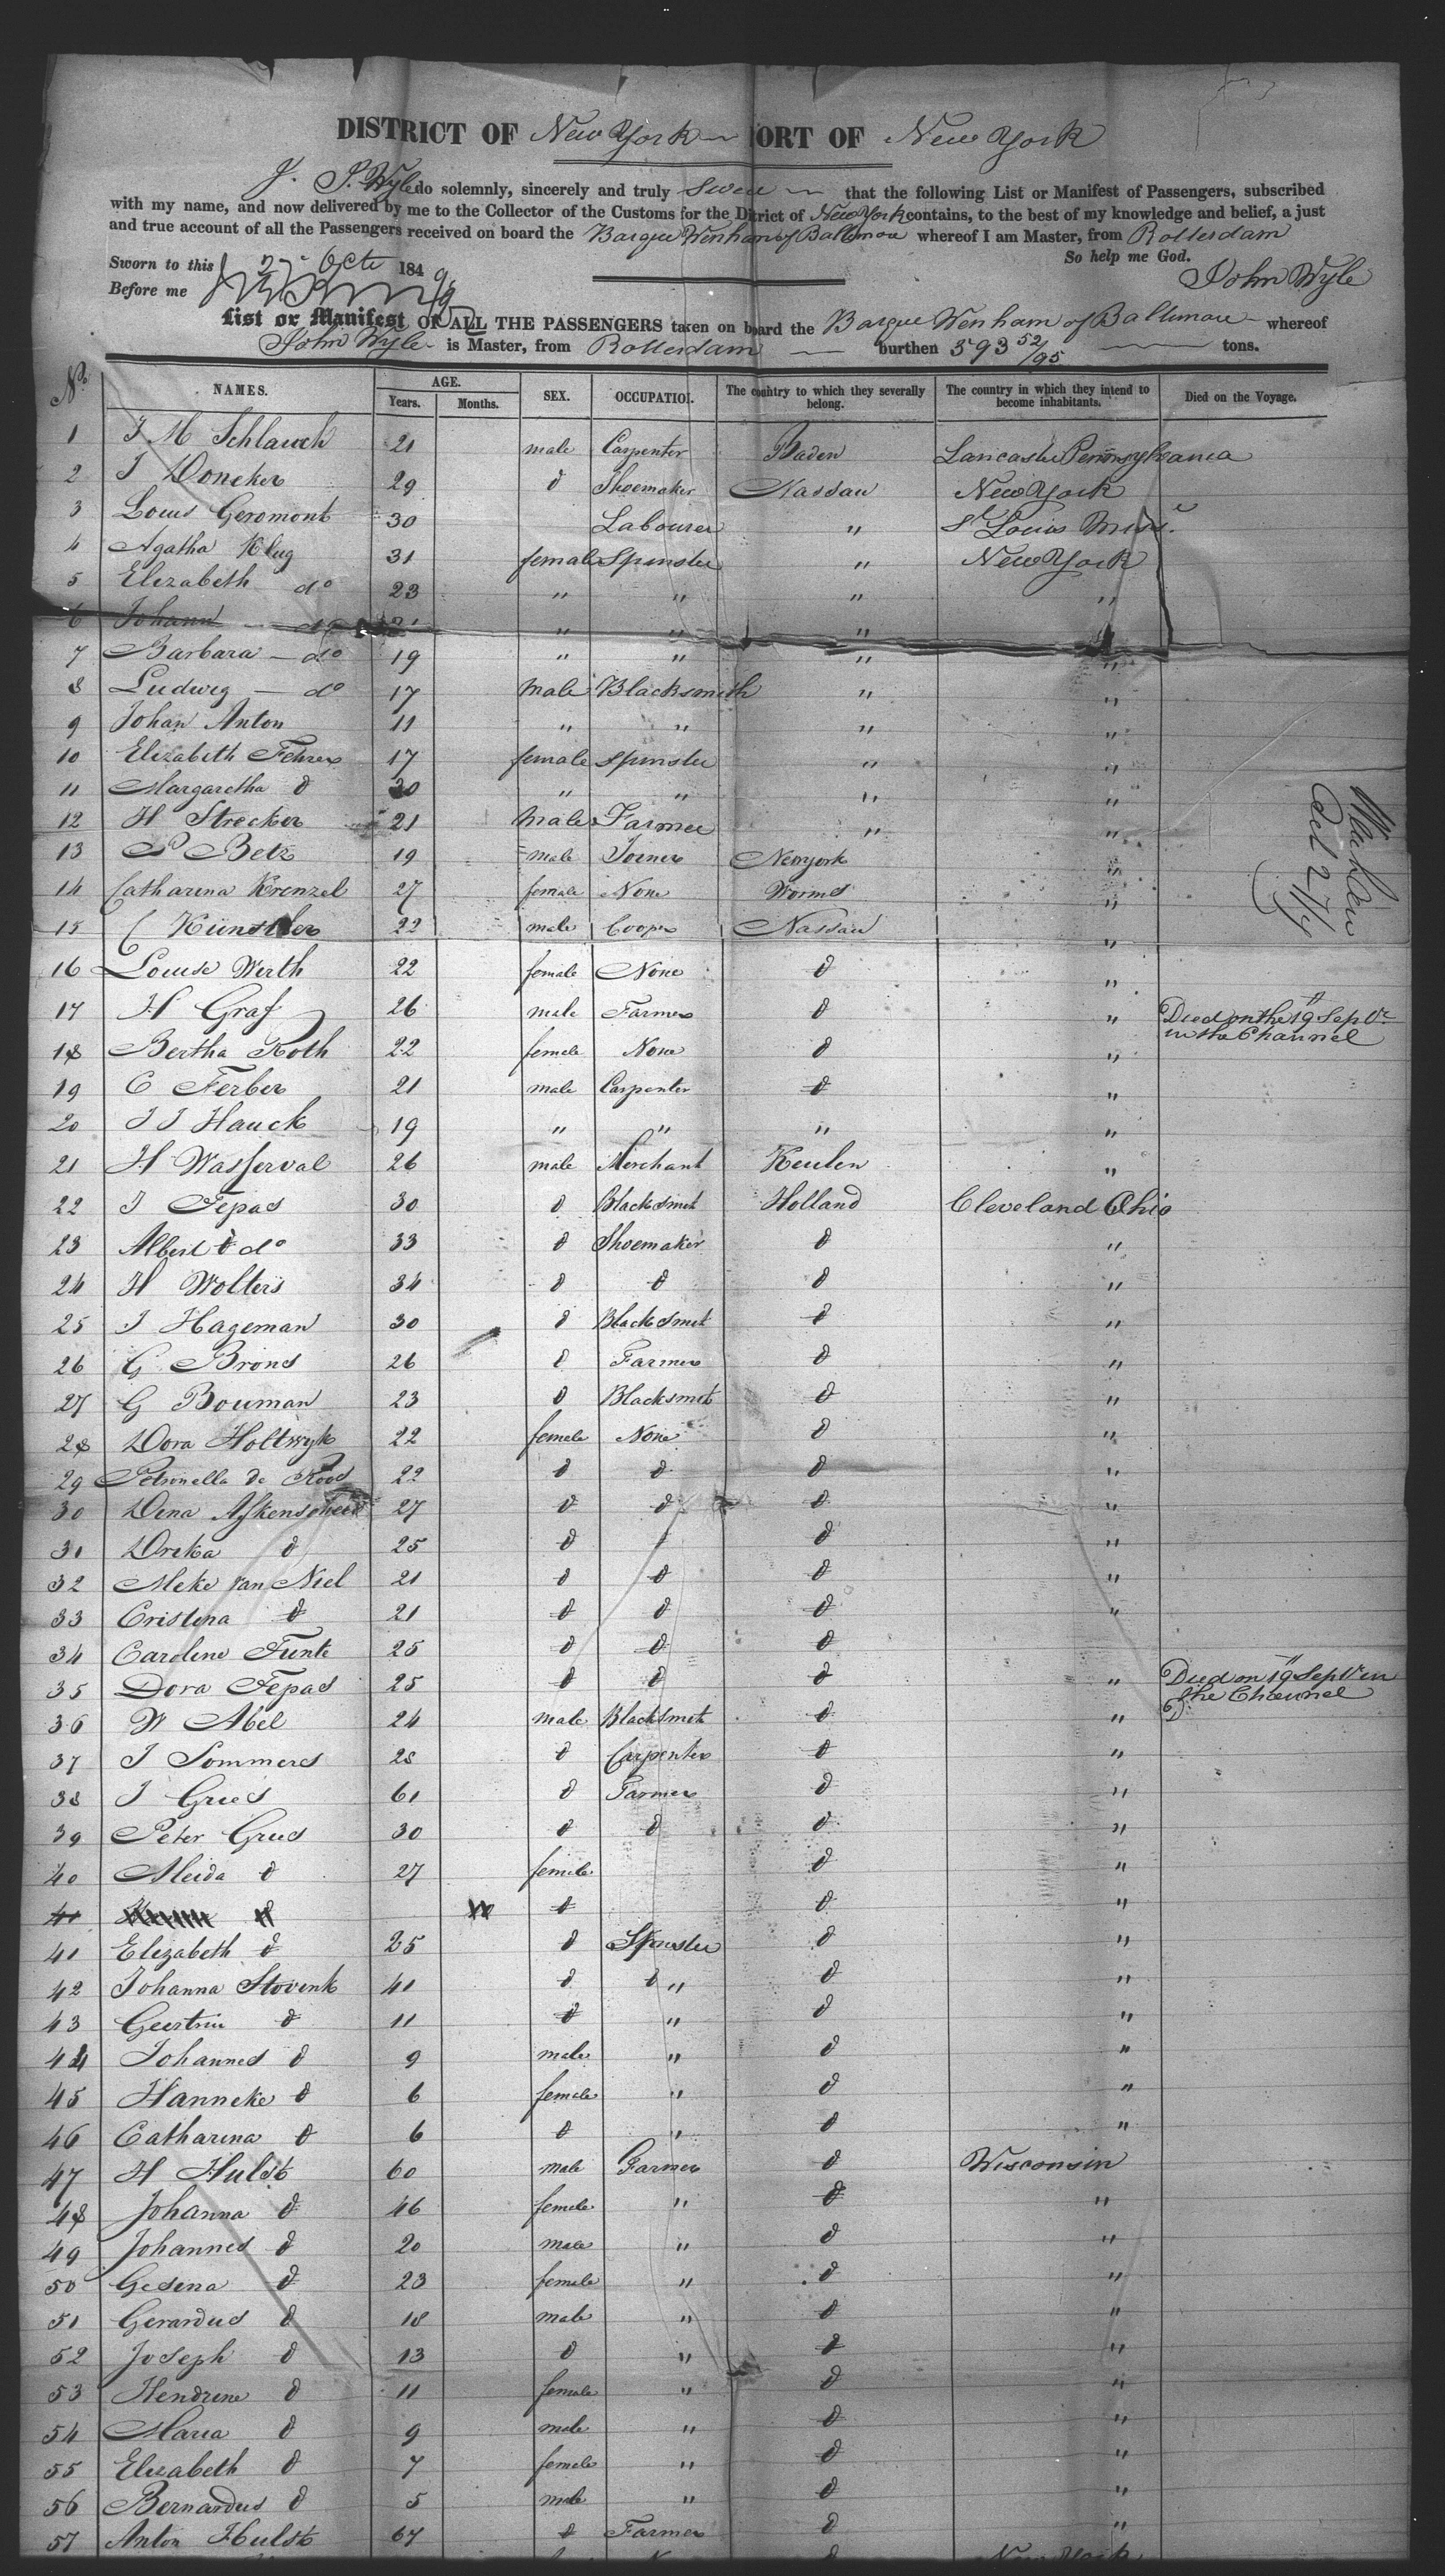 DISTRICT OF New York PORT OF New York
J. P. Wyle do solemnly, sincerely and truly swear that the following List or Manifest of Passengers, subscribed
with my name, and now delivered by me to the Collector of the Customs for the District of New York contains, to the best of my knowledge and belief, a just
and true account of all the Passengers received on board the Barque Wenham of Baltimore whereof I am Master, from Rotterdam
So help me God.
Sworn to this 27 Octr 1849
Before me
John Wyle
List or Manifest OF ALL THE PASSENGERS taken on board the Barque Wenham of Baltimore whereof
John Wyle is Master, from Rotterdam burthen 393 52/95 tons.
No. NAMES. AGE. SEX. OCCUPATION. The country to which they severally belong. The country in which they intend to become inhabitants. Died on the Voyage.
Years. Months.
1 J M Schlauch 21 male Carpenter Baden Lancaster Pennsylvania
2 J Doneker 29 d Shoemaker Nassau New York
3 Louis Geromont 30 Labourer " St Louis
4 Agatha Klug 31 female Spinster " New York
5 Elizabeth do 23 " " " "
6 Johann do " " "
7 Barbara do 19 " " " "
8 Ludwig do 17 male Blacksmith " "
9 Johan Anton 11 " " " "
10 Elizabeth Fehrer 17 female spinster " "
11 Margaretha d 20 " " " "
12 H Strecker 21 male Farmer " "
13 P Betz 19 male Joiner Newyork "
14 Catharina Krenzel 27 female None Worms "
15 C Künstler 22 male Cooper Nassau "
16 Louise Werth 22 female None d "
17 H Graf 26 male Farmer d " Died on the 19th Septr in the Channel
18 Bertha Roth 22 female None d "
19 C Ferber 21 male Carpenter d "
20 J J Hauck 19 " " " "
21 H Wasserval 26 male Merchant Keulen "
22 J Tepas 30 d Blacksmet Holland Cleveland Ohio
23 Albert do 33 d Shoemaker d "
24 H Wolters 34 d d d "
25 J Hageman 30 d Blacksmet d "
26 G Brons 26 d Farmer d "
27 G Bouman 23 d Blacksmet d "
28 Dora Holtwyk 22 female None d "
29 Petronella de Rood 22 d d d "
30 Dena 27 d d d "
31 Dreka d 25 d d d "
32 Meke van Niel 21 d d d "
33 Cristina d 21 d d d "
34 Caroline Funte 25 d d d
35 Dora Tepas 25 d d d " Died on 19th Septr in the Channel
36 W Abel 24 male Blacksmet d "
37 J Sommers 28 d Carpenter d "
38 J Gries 61 d Farmer d "
39 Peter Gries 30 d d d "
40 Aleida d 27 female d "
41 d d d "
41 Elizabeth d 25 d Spinster d "
42 Johanna Stovink 41 d d " d "
43 Geertrui d 11 d " d "
44 Johannes d 9 male " d "
45 Hanneke d 6 female " d "
46 Catharina d 6 d " d "
47 H Hulst 60 male Farmer d Wisconsin
48 Johanna d 46 female " d "
49 Johannes d 20 male " d "
50 Gesina d 23 female " d "
51 Gerardus d 18 male " d "
52 Joseph d 13 d " d "
53 Hendrine d 11 female " d "
54 Maria d 9 male " d "
55 Elizabeth d 7 female " d "
56 Bernardus d 5 male " d "
57 Anton Hulst 67 d Farmer d "
New York
Oct 27/49